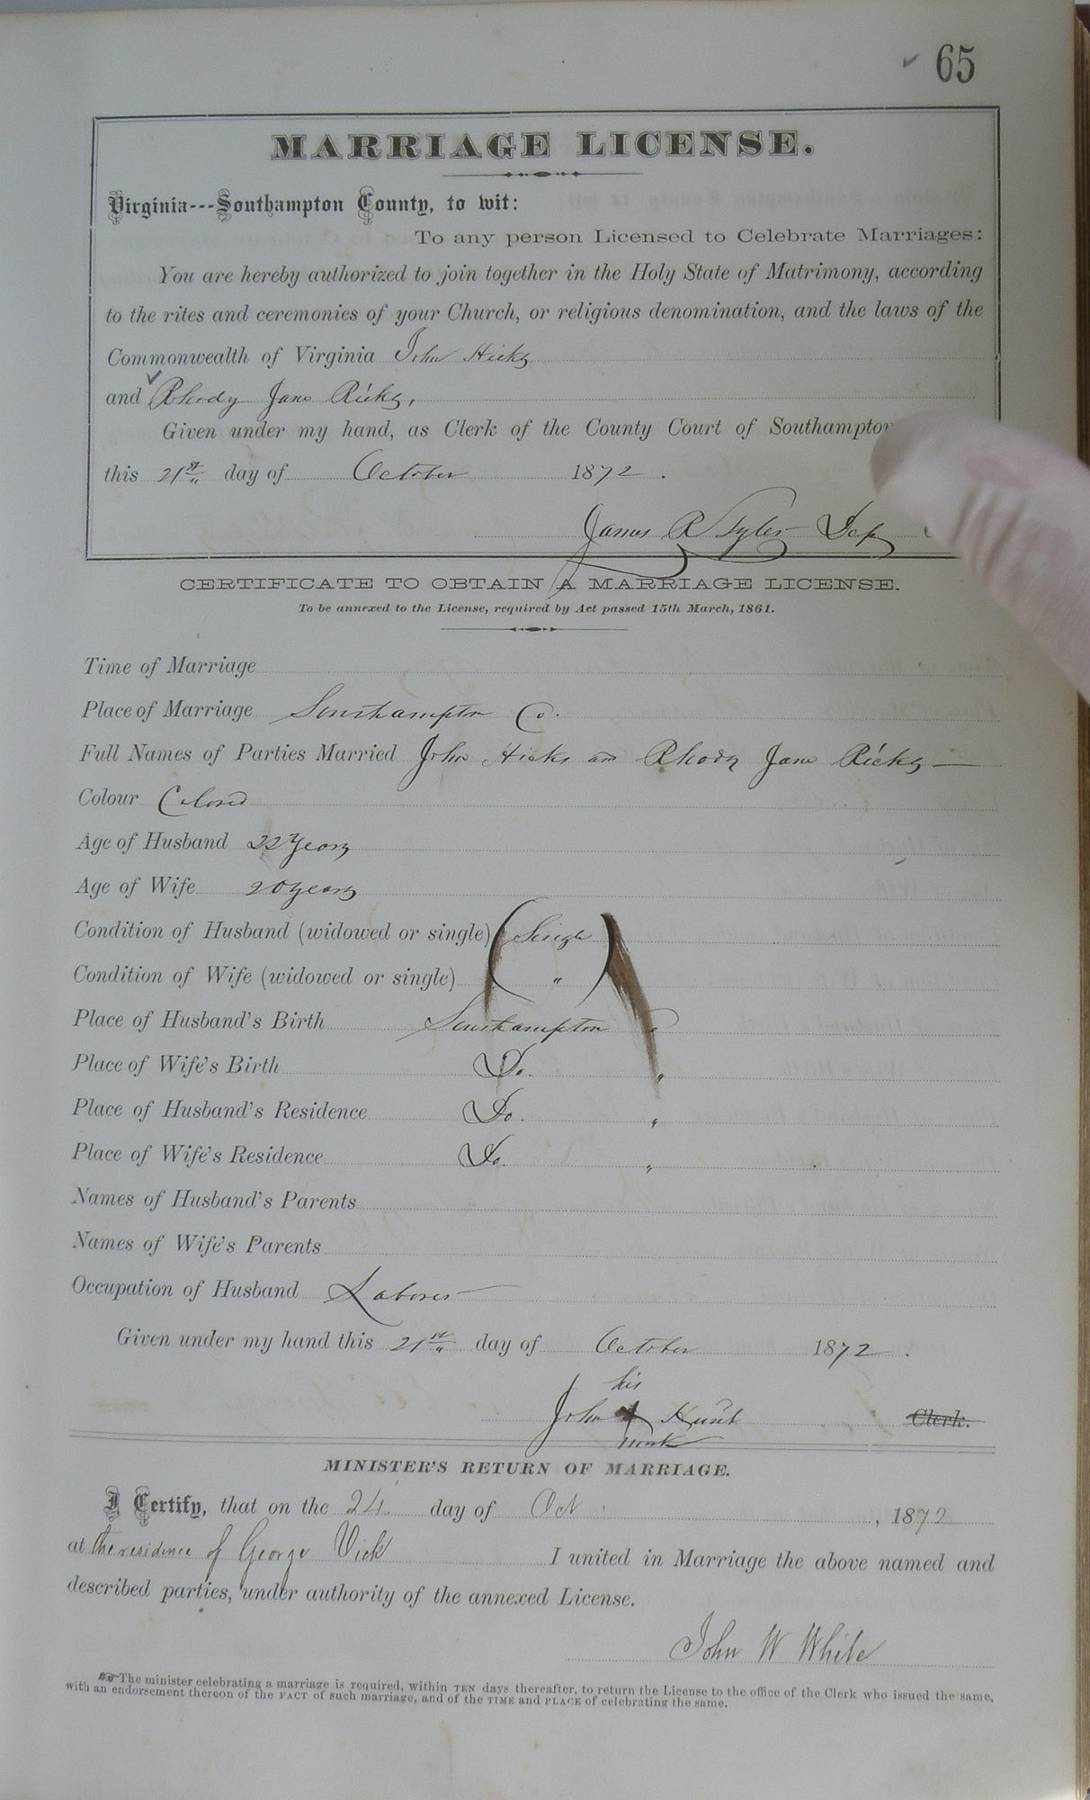 65
MARRIAGE LICENSE.
Virginia---Southampton County, to wit:
To any person Licensed to Celebrate Marriages:
You are hereby authorized to join together in the Holy State of Matrimony, according
to the rites and ceremonies of your Church, or religious denomination, and the laws of the
Commonwealth of Virginia John Hicks
and Rhody Jane Ricks,
Given under my hand, as Clerk of the County Court of Southampton
this 21st day of October 1872.
James R Tyler Dep
CERTIFICATE TO OBTAIN A MARRIAGE LICENSE.
To be annexed to the License, required by Act passed 15th March, 1861.
Time of Marriage
Place of Marriage Southampton Co.
Full Names of Parties Married John Hicks and Rhody Jane Ricks
Colour Colored
Age of Husband 22 years
Age of Wife 20 years
Condition of Husband (widowed or single) Single
Condition of Wife (widowed or single) "
Place of Husband's Birth Southampton
Place of Wife's Birth Do. "
Place of Husband's Residence Do. "
Place of Wife's Residence Do. "
Names of Husband's Parents
Names of Wife's Parents
Occupation of Husband Laborer
Given under my hand this 21st day of October 1872.
his
John X Hunt Clerk.
mark
MINISTER'S RETURN OF MARRIAGE.
I Certify, that on the 24 day of Oct. , 1872
at the residence of George Vick I united in Marriage the above named and
described parties, under authority of the annexed License.
John W White
The minister celebrating a marriage is required, within TEN days thereafter, to return the License to the office of the Clerk who issued the same,
with an endorsement thereon of the FACT of such marriage, and of the TIME and PLACE of celebrating the same.